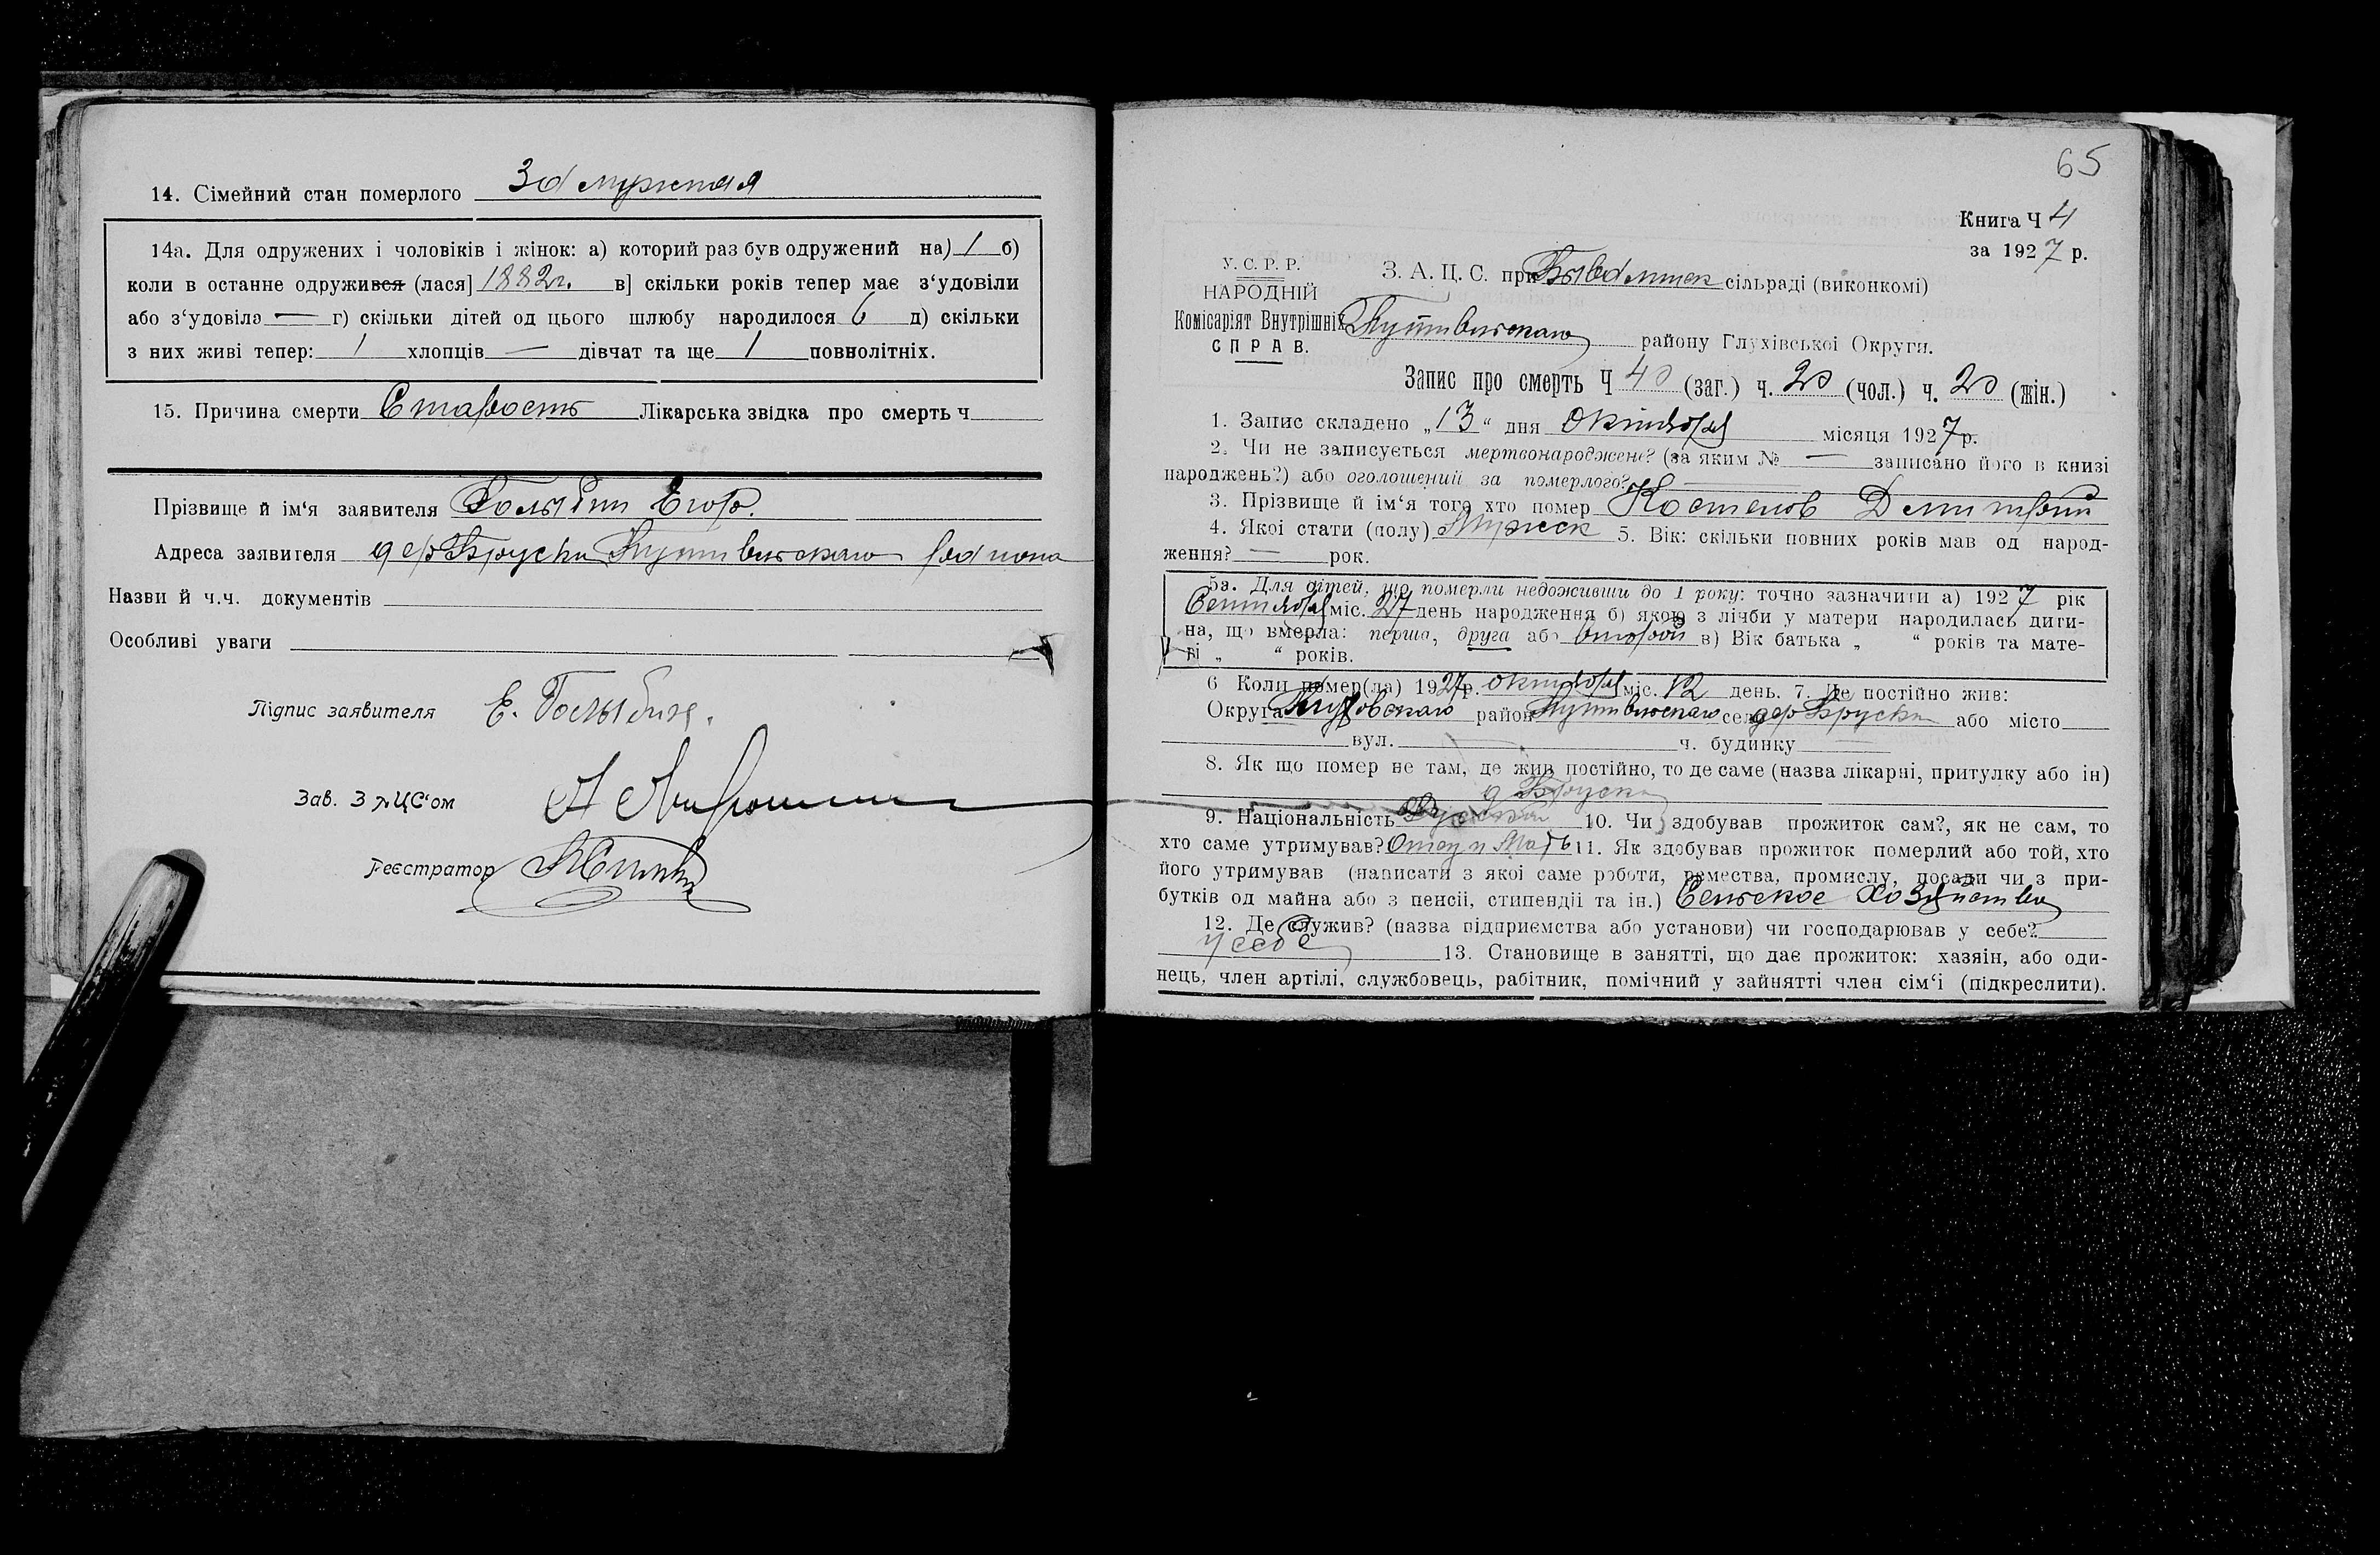 14. Сімейний стан померлого Замужная
14а. Для одружених і чоловіків і жінок: а) которий раз був одружений на) 1 б)
коли в останне одружився (лася] 1882г. в] скільки років тепер має з‘удовіли
або з‘удовіла — г) скільки дітей од цього шлюбу народилося 6 д) скільки
з них живі тепер: 1 хлопців — дівчат та ще 1 повнолітніх.
15. Причина смерти Старость Лікарська звідка про смерть ч
Прізвище й ім‘я заявителя Голыбин Егор.
Адреса заявителя дер Бруски Путивльскаго района
Назви й ч.ч. документів
Особливі уваги
Підпис заявителя Е. Голыбин.
Зав. ЗАЦС‘ом
Реєстратор
65
Книга Ч 4
за 1927 р.
У. С. Р. Р.
НАРОДНІЙ
Комісаріят Внутрішніх
СПРАВ.
З. А. Ц. С. при сільраді (виконкомі)
Путивльскаго району Глухівської Округи.
Запис про смерть Ч 40 (заг.) ч. 20 (чол.) ч. 20 (жін.)
1. Запис складено „13“ дня Октября місяця 1927р.
2. Чи не записується мертвонароджене? (за яким № — записано його в книзі
народжень?) або оголошений за померлого? —
3. Прізвище й ім‘я того хто помер Костенов Дмитрий
4. Якої стати (полу) Мужск 5. Вік: скільки повних років мав од народ-
ження? — рок.
5а. Для дітей, що померли недоживши до 1 року: точно зазначити а) 1927 рік
Сентября міс. 27 день народження б) якою з лічби у матери народилась дити-
на, що вмерла: перша, друга або второй в) Вік батька „ “ років та мате-
рі „ “ років.
6 Коли помер(ла) 1927р. октября міс. 12 день. 7. Де постійно жив:
Округа Глуховскаго район Путивльскаго село дер Бруски або місто
вул. ч. будинку
8. Як що помер не там, де жив постійно, то де саме (назва лікарні, притулку або ін)
д Бруски
9. Національність Русский 10. Чи здобував прожиток сам?, як не сам, то
хто саме утримував? Отец и Мать 11. Як здобував прожиток померлий або той, хто
його утримував (написати з якої саме роботи, ремества, промислу, посади чи з при-
бутків од майна або з пенсії, стипендії та ін.) Сельское Хозяйство
12. Де служив? (назва підприємства або установи) чи господарював у себе?
у себе 13. Становище в занятті, що дає прожиток: хазяін, або оди-
нець, член артілі, службовець, рабітник, помічний у зайнятті член сім‘і (підкреслити).